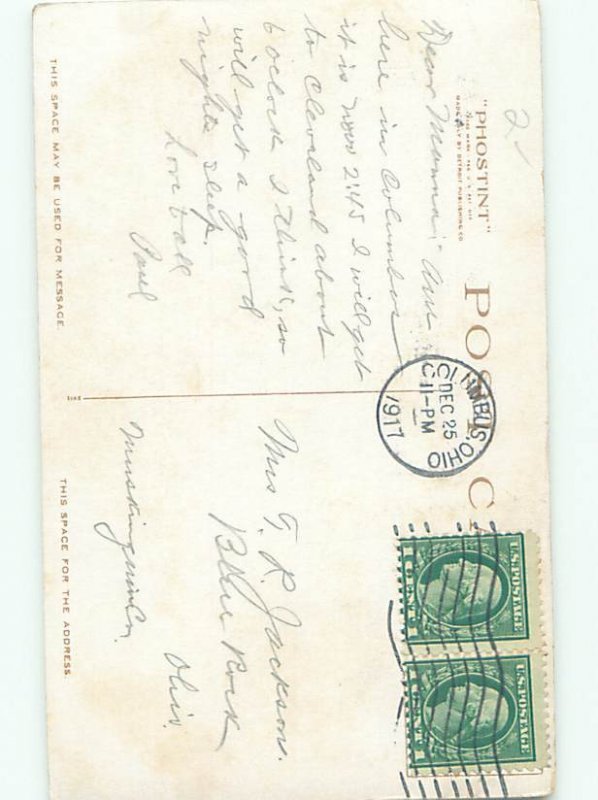 2
"PHOSTINT"
MADE ONLY BY DETROIT PUBLISHING CO.
POST CA
Dear Mamma; Am
here in Columbus
it is now 2:45 I will get
to Cleveland about
6 oclock I think, so
will get a good
nights sleep.
Love to all
Paul
THIS SPACE MAY BE USED FOR MESSAGE.
COLUMBUS, OHIO
DEC 25
11-PM
1917
U.S. POSTAGE
1 CENT 1
U.S. POSTAGE
1 CENT 1
Mrs T. R. Jackson.
Blue Rock
Ohio.
Muskingum Co.
THIS SPACE FOR THE ADDRESS.